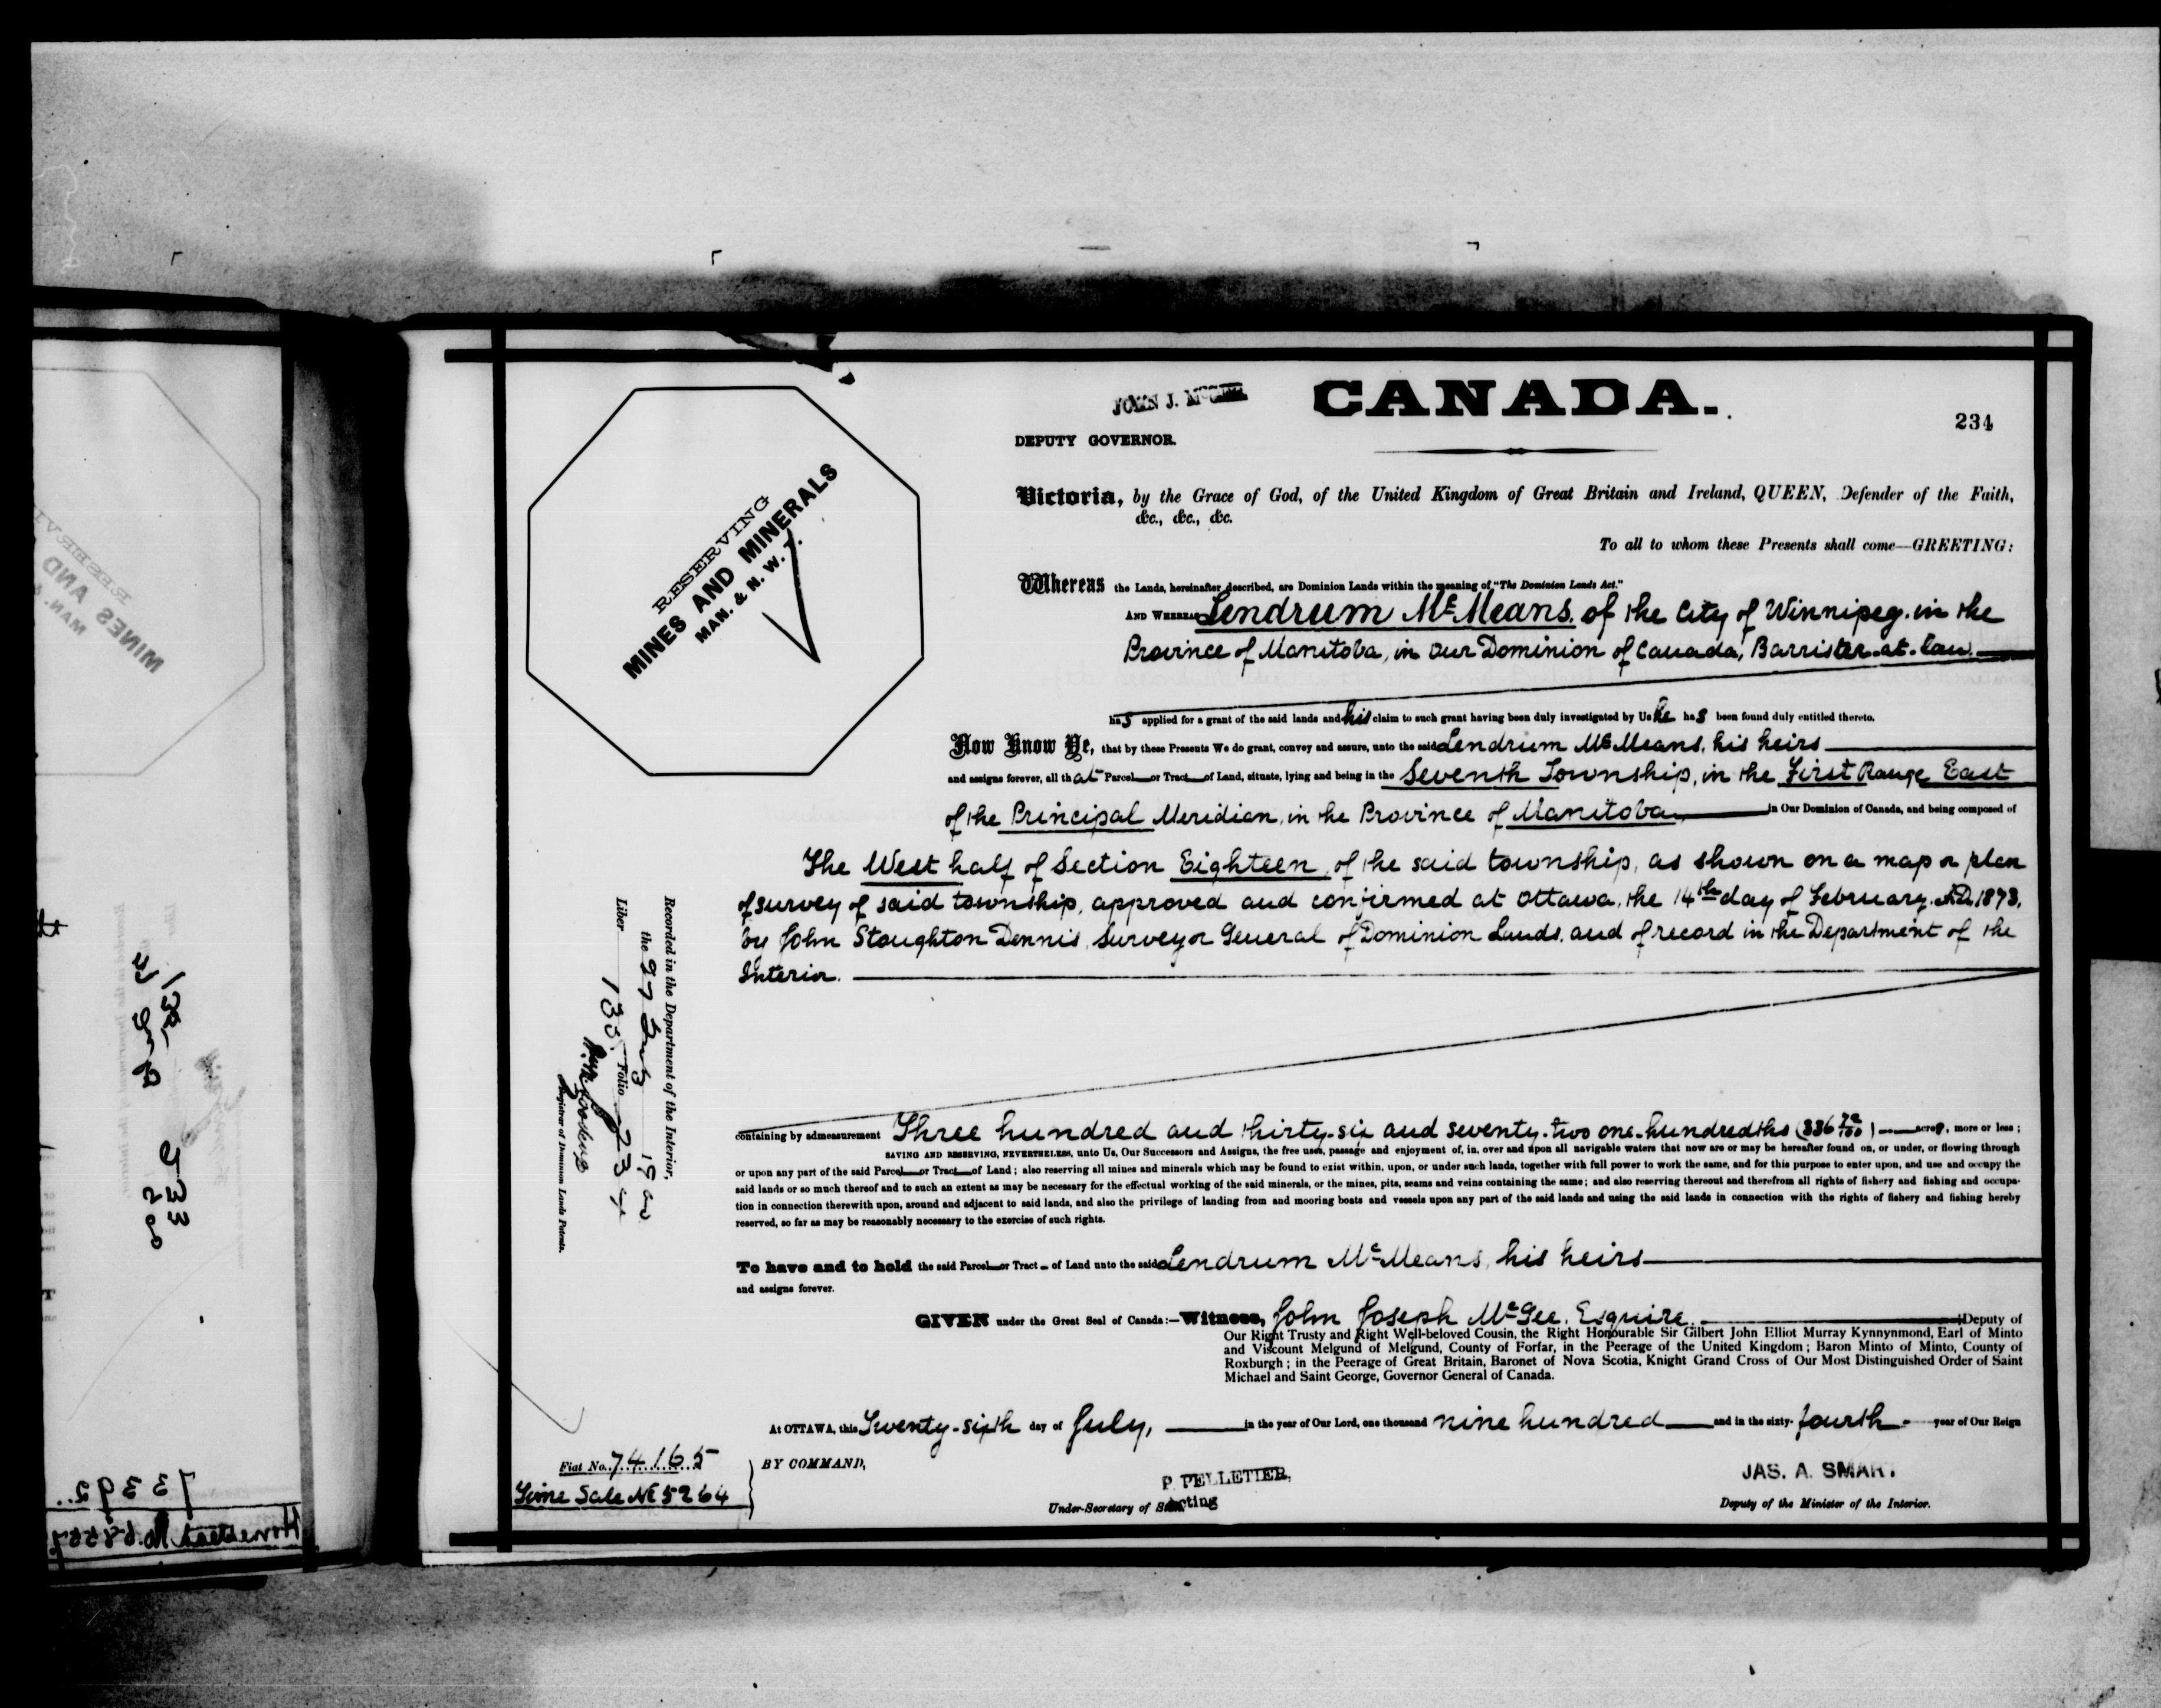 JOHN J. McGEE
CANADA.
234
DEPUTY GOVERNOR.
Victoria, by the Grace of God, of the United Kingdom of Great Britain and Ireland, QUEEN, Defender of the Faith,
&c., &c., &c.
To all to whom these Presents shall come—GREETING:
RESERVING
MINES AND MINERALS
MAN. & N. W. T.
Whereas the Lands, hereinafter described, are Dominion Lands within the meaning of "The Dominion Lands Act."
AND WHEREAS Lendrum McMeans, of the City of Winnipeg, in the
Province of Manitoba, in Our Dominion of Canada, Barrister-at-law.
has applied for a grant of the said lands and his claim to such grant having been duly investigated by Us he has been found duly entitled thereto.
Now Know Ye, that by these Presents We do grant, convey and assure, unto the said Lendrum McMeans, his heirs
and assigns forever, all that Parcel or Tract of Land, situate, lying and being in the Seventh Township, in the First Range East
of the Principal Meridian, in the Province of Manitoba, in Our Dominion of Canada, and being composed of
The West half of Section Eighteen, of the said township, as shown on a map or plan
of survey of said township, approved and confirmed at Ottawa, the 14th day of February, A.D. 1873,
by John Stoughton Dennis, Surveyor General of Dominion Lands, and of record in the Department of the
Interior.
Recorded in the Department of the Interior,
the 27 July 1900
Liber 135 Folio 234
Registrar of Dominion Lands Patents.
containing by admeasurement Three hundred and thirty-six and seventy-two one-hundredths (336 72/100) acres, more or less;
SAVING AND RESERVING, NEVERTHELESS, unto Us, Our Successors and Assigns, the free uses, passage and enjoyment of, in, over and upon all navigable waters that now are or may be hereafter found on, or under, or flowing through
or upon any part of the said Parcel or Tract of Land; also reserving all mines and minerals which may be found to exist within, upon, or under such lands, together with full power to work the same, and for this purpose to enter upon, and use and occupy the
said lands or so much thereof and to such an extent as may be necessary for the effectual working of the said minerals, or the mines, pits, seams and veins containing the same; and also reserving thereout and therefrom all rights of fishery and fishing and occupa-
tion in connection therewith upon, around and adjacent to said lands, and also the privilege of landing from and mooring boats and vessels upon any part of the said lands and using the said lands in connection with the rights of fishery and fishing hereby
reserved, so far as may be reasonably necessary to the exercise of such rights.
To have and to hold the said Parcel or Tract of Land unto the said Lendrum McMeans, his heirs
and assigns forever.
GIVEN under the Great Seal of Canada:—Witness, John Joseph McGee, Esquire. Deputy of
Our Right Trusty and Right Well-beloved Cousin, the Right Honourable Sir Gilbert John Elliot Murray Kynnynmond, Earl of Minto
and Viscount Melgund of Melgund, County of Forfar, in the Peerage of the United Kingdom; Baron Minto of Minto, County of
Roxburgh; in the Peerage of Great Britain, Baronet of Nova Scotia, Knight Grand Cross of Our Most Distinguished Order of Saint
Michael and Saint George, Governor General of Canada.
At OTTAWA, this Twenty-sixth day of July, in the year of Our Lord, one thousand nine hundred and in the sixty-fourth year of Our Reign
Fiat No. 74165
Time Sale No 5264
BY COMMAND,
P. PELLETIER,
Acting
Under-Secretary of State.
JAS. A. SMART
Deputy of the Minister of the Interior.